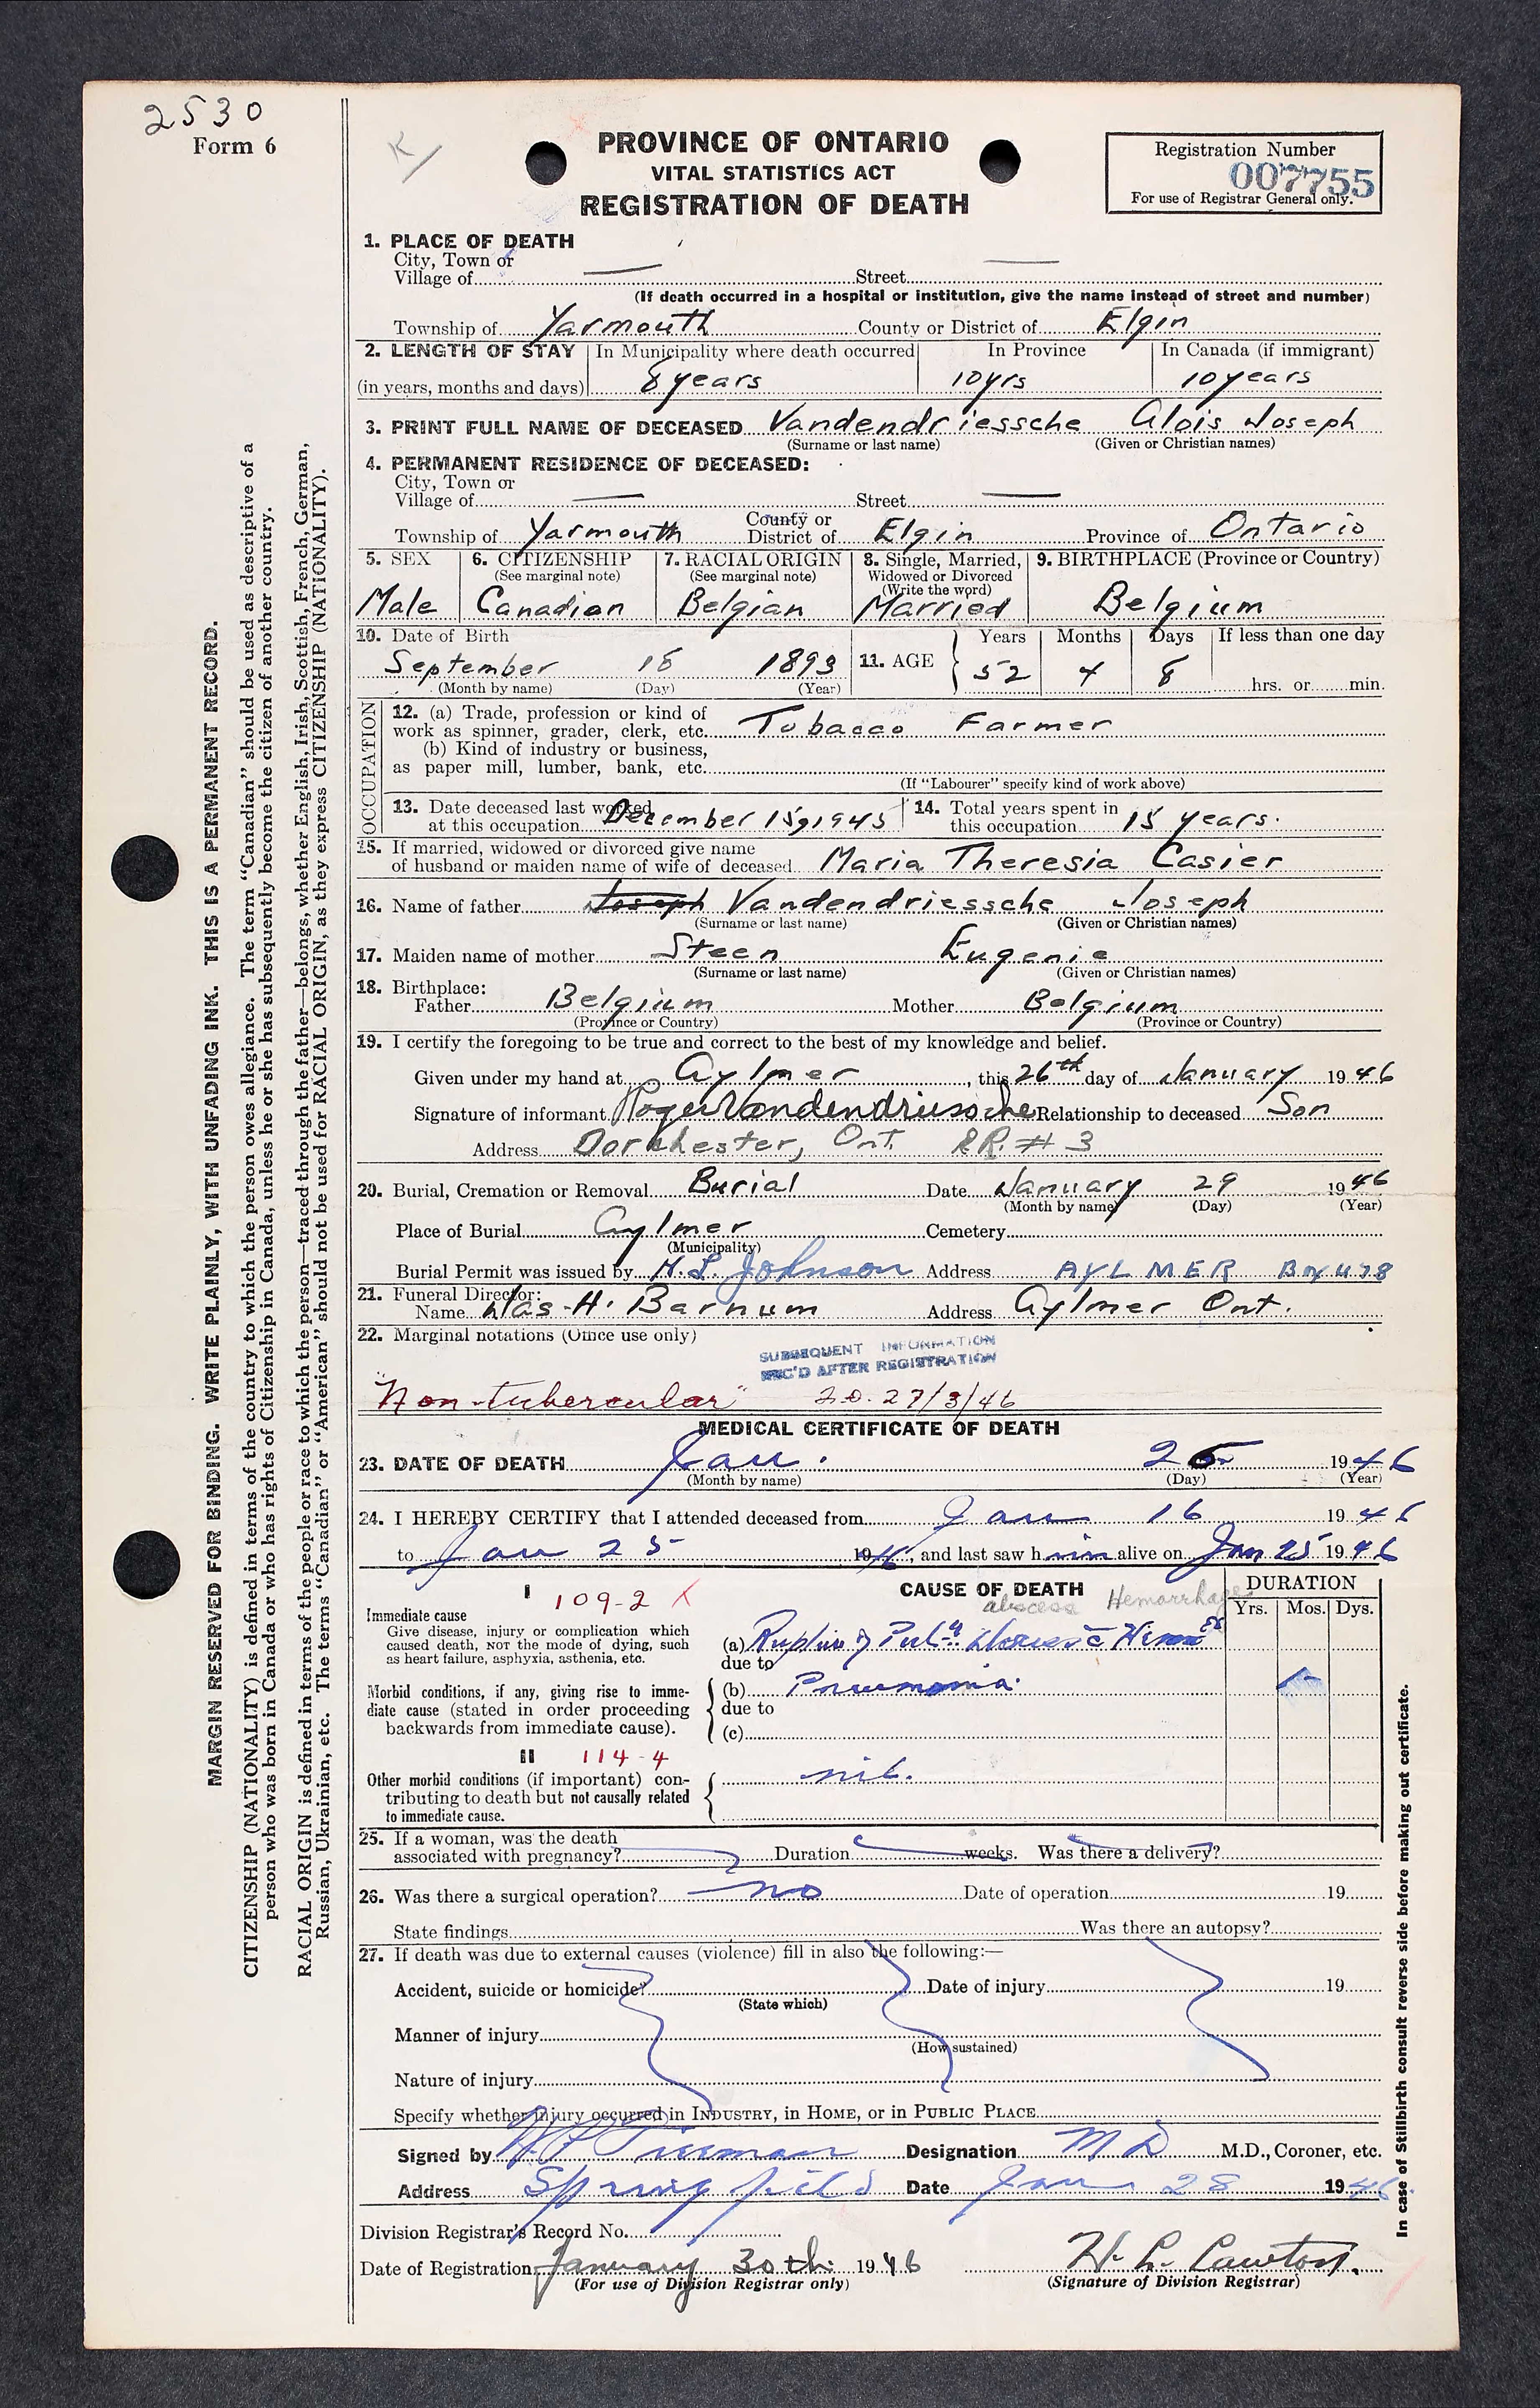 2530
Form 6
PROVINCE OF ONTARIO
VITAL STATISTICS ACT
REGISTRATION OF DEATH
Registration Number
007755
For use of Registrar General only.
1. PLACE OF DEATH
City, Town or
Village of — Street —
(If death occurred in a hospital or institution, give the name instead of street and number)
Township of Yarmouth County or District of Elgin
2. LENGTH OF STAY In Municipality where death occurred In Province In Canada (if immigrant)
(in years, months and days) 8 years 10 yrs 10 years
3. PRINT FULL NAME OF DECEASED Vandendriessche Alois Joseph
(Surname or last name) (Given or Christian names)
4. PERMANENT RESIDENCE OF DECEASED:
City, Town or
Village of — Street —
Township of Yarmouth County or District of Elgin Province of Ontario
5. SEX 6. CITIZENSHIP 7. RACIAL ORIGIN 8. Single, Married, 9. BIRTHPLACE (Province or Country)
(See marginal note) (See marginal note) Widowed or Divorced
(Write the word)
Male Canadian Belgian Married Belgium
10. Date of Birth 11. AGE Years Months Days If less than one day
September 18 1893 52 4 8 hrs. or min.
(Month by name) (Day) (Year)
OCCUPATION
12. (a) Trade, profession or kind of
work as spinner, grader, clerk, etc. Tobacco Farmer
(b) Kind of industry or business,
as paper mill, lumber, bank, etc.
(If "Labourer" specify kind of work above)
13. Date deceased last worked
at this occupation December 15, 1945
14. Total years spent in
this occupation 15 years.
15. If married, widowed or divorced give name
of husband or maiden name of wife of deceased Maria Theresia Casier
16. Name of father Joseph Vandendriessche Joseph
(Surname or last name) (Given or Christian names)
17. Maiden name of mother Steen Eugenie
(Surname or last name) (Given or Christian names)
18. Birthplace:
Father Belgium Mother Belgium
(Province or Country) (Province or Country)
19. I certify the foregoing to be true and correct to the best of my knowledge and belief.
Given under my hand at Aylmer, this 26th day of January 1946
Signature of informant Roger Vandendriessche Relationship to deceased Son
Address Dorchester, Ont. RR. # 3
20. Burial, Cremation or Removal Burial Date January 29 1946
(Month by name) (Day) (Year)
Place of Burial Aylmer Cemetery
(Municipality)
Burial Permit was issued by H. L. Johnson Address AYLMER Box 478
21. Funeral Director:
Name Jas. H. Barnum Address Aylmer Ont.
22. Marginal notations (Office use only)
SUBSEQUENT INFORMATION
REC'D AFTER REGISTRATION
"Non-tubercular" 27/3/46
MEDICAL CERTIFICATE OF DEATH
23. DATE OF DEATH Jan. 25 1946
(Month by name) (Day) (Year)
24. I HEREBY CERTIFY that I attended deceased from Jan 16 1946
to Jan 25 1946, and last saw him alive on Jan 25 1946
I 109-2 X
CAUSE OF DEATH
DURATION
Yrs. Mos. Dys.
abscess Hemorrhage
Immediate cause
Give disease, injury or complication which
caused death, NOT the mode of dying, such
as heart failure, asphyxia, asthenia, etc.
(a) Rupture of
due to
Morbid conditions, if any, giving rise to imme-
diate cause (stated in order proceeding
backwards from immediate cause).
(b) Pneumonia.
due to
(c)
II 114-4
Other morbid conditions (if important) con-
tributing to death but not causally related
to immediate cause.
nil.
25. If a woman, was the death
associated with pregnancy? Duration weeks. Was there a delivery?
26. Was there a surgical operation? no Date of operation 19
State findings Was there an autopsy?
27. If death was due to external causes (violence) fill in also the following:—
Accident, suicide or homicide? Date of injury 19
(State which)
Manner of injury
(How sustained)
Nature of injury
Specify whether injury occurred in INDUSTRY, in HOME, or in PUBLIC PLACE
Signed by Designation M D M.D., Coroner, etc.
Address Springfield Date Jan 28 1946
Division Registrar's Record No.
Date of Registration January 30th 1946 H. L. Lawton.
(For use of Division Registrar only) (Signature of Division Registrar)
MARGIN RESERVED FOR BINDING. WRITE PLAINLY, WITH UNFADING INK. THIS IS A PERMANENT RECORD.
CITIZENSHIP (NATIONALITY) is defined in terms of the country to which the person owes allegiance. The term "Canadian" should be used as descriptive of a
person who was born in Canada or who has rights of Citizenship in Canada, unless he or she has subsequently become the citizen of another country.
RACIAL ORIGIN is defined in terms of the people or race to which the person—traced through the father—belongs, whether English, Irish, Scottish, French, German,
Russian, Ukrainian, etc. The terms "Canadian" or "American" should not be used for RACIAL ORIGIN, as they express CITIZENSHIP (NATIONALITY).
In case of Stillbirth consult reverse side before making out certificate.